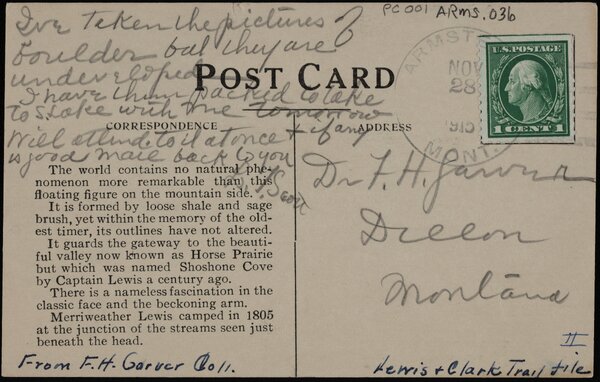 PC 001 ARMS.036
I've taken the pictures of
boulder but they are
undeveloped
I have them packed to take
to S. Lake with me tomorrow
Will attend to it at once & if any
is good mail back to you
Scott
POST CARD
CORRESPONDENCE
The world contains no natural phe-
nomenon more remarkable than this
floating figure on the mountain side.
It is formed by loose shale and sage
brush, yet within the memory of the old-
est timer, its outlines have not altered.
It guards the gateway to the beauti-
ful valley now known as Horse Prairie
but which was named Shoshone Cove
by Captain Lewis a century ago.
There is a nameless fascination in the
classic face and the beckoning arm.
Merriweather Lewis camped in 1805
at the junction of the streams seen just
beneath the head.
From F.H. Garver Coll.
ADDRESS
ARMST
NOV
28
1915
MONT.
U.S. POSTAGE
1 CENT 1
Dr F. H. Garver
Dillon
Montana
II
Lewis & Clark Trail file